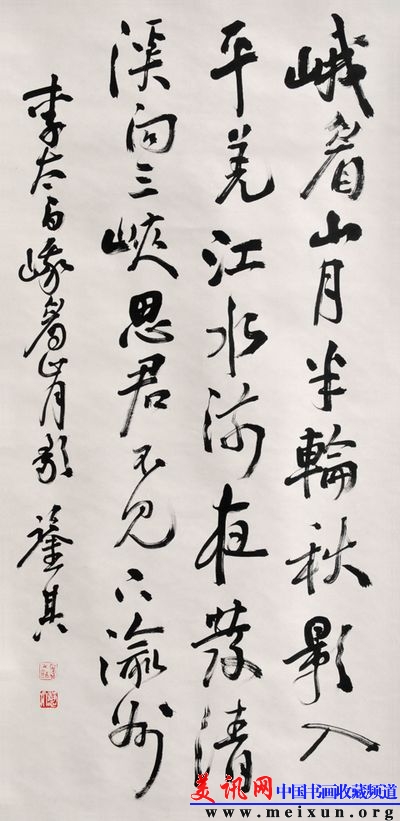 峨眉山月半輪秋影入
平羌江水流夜發清
溪向三峽思君不見下渝州
李太白峨眉山月歌
其
美讯网 中国书画收藏频道
www.meixun.org